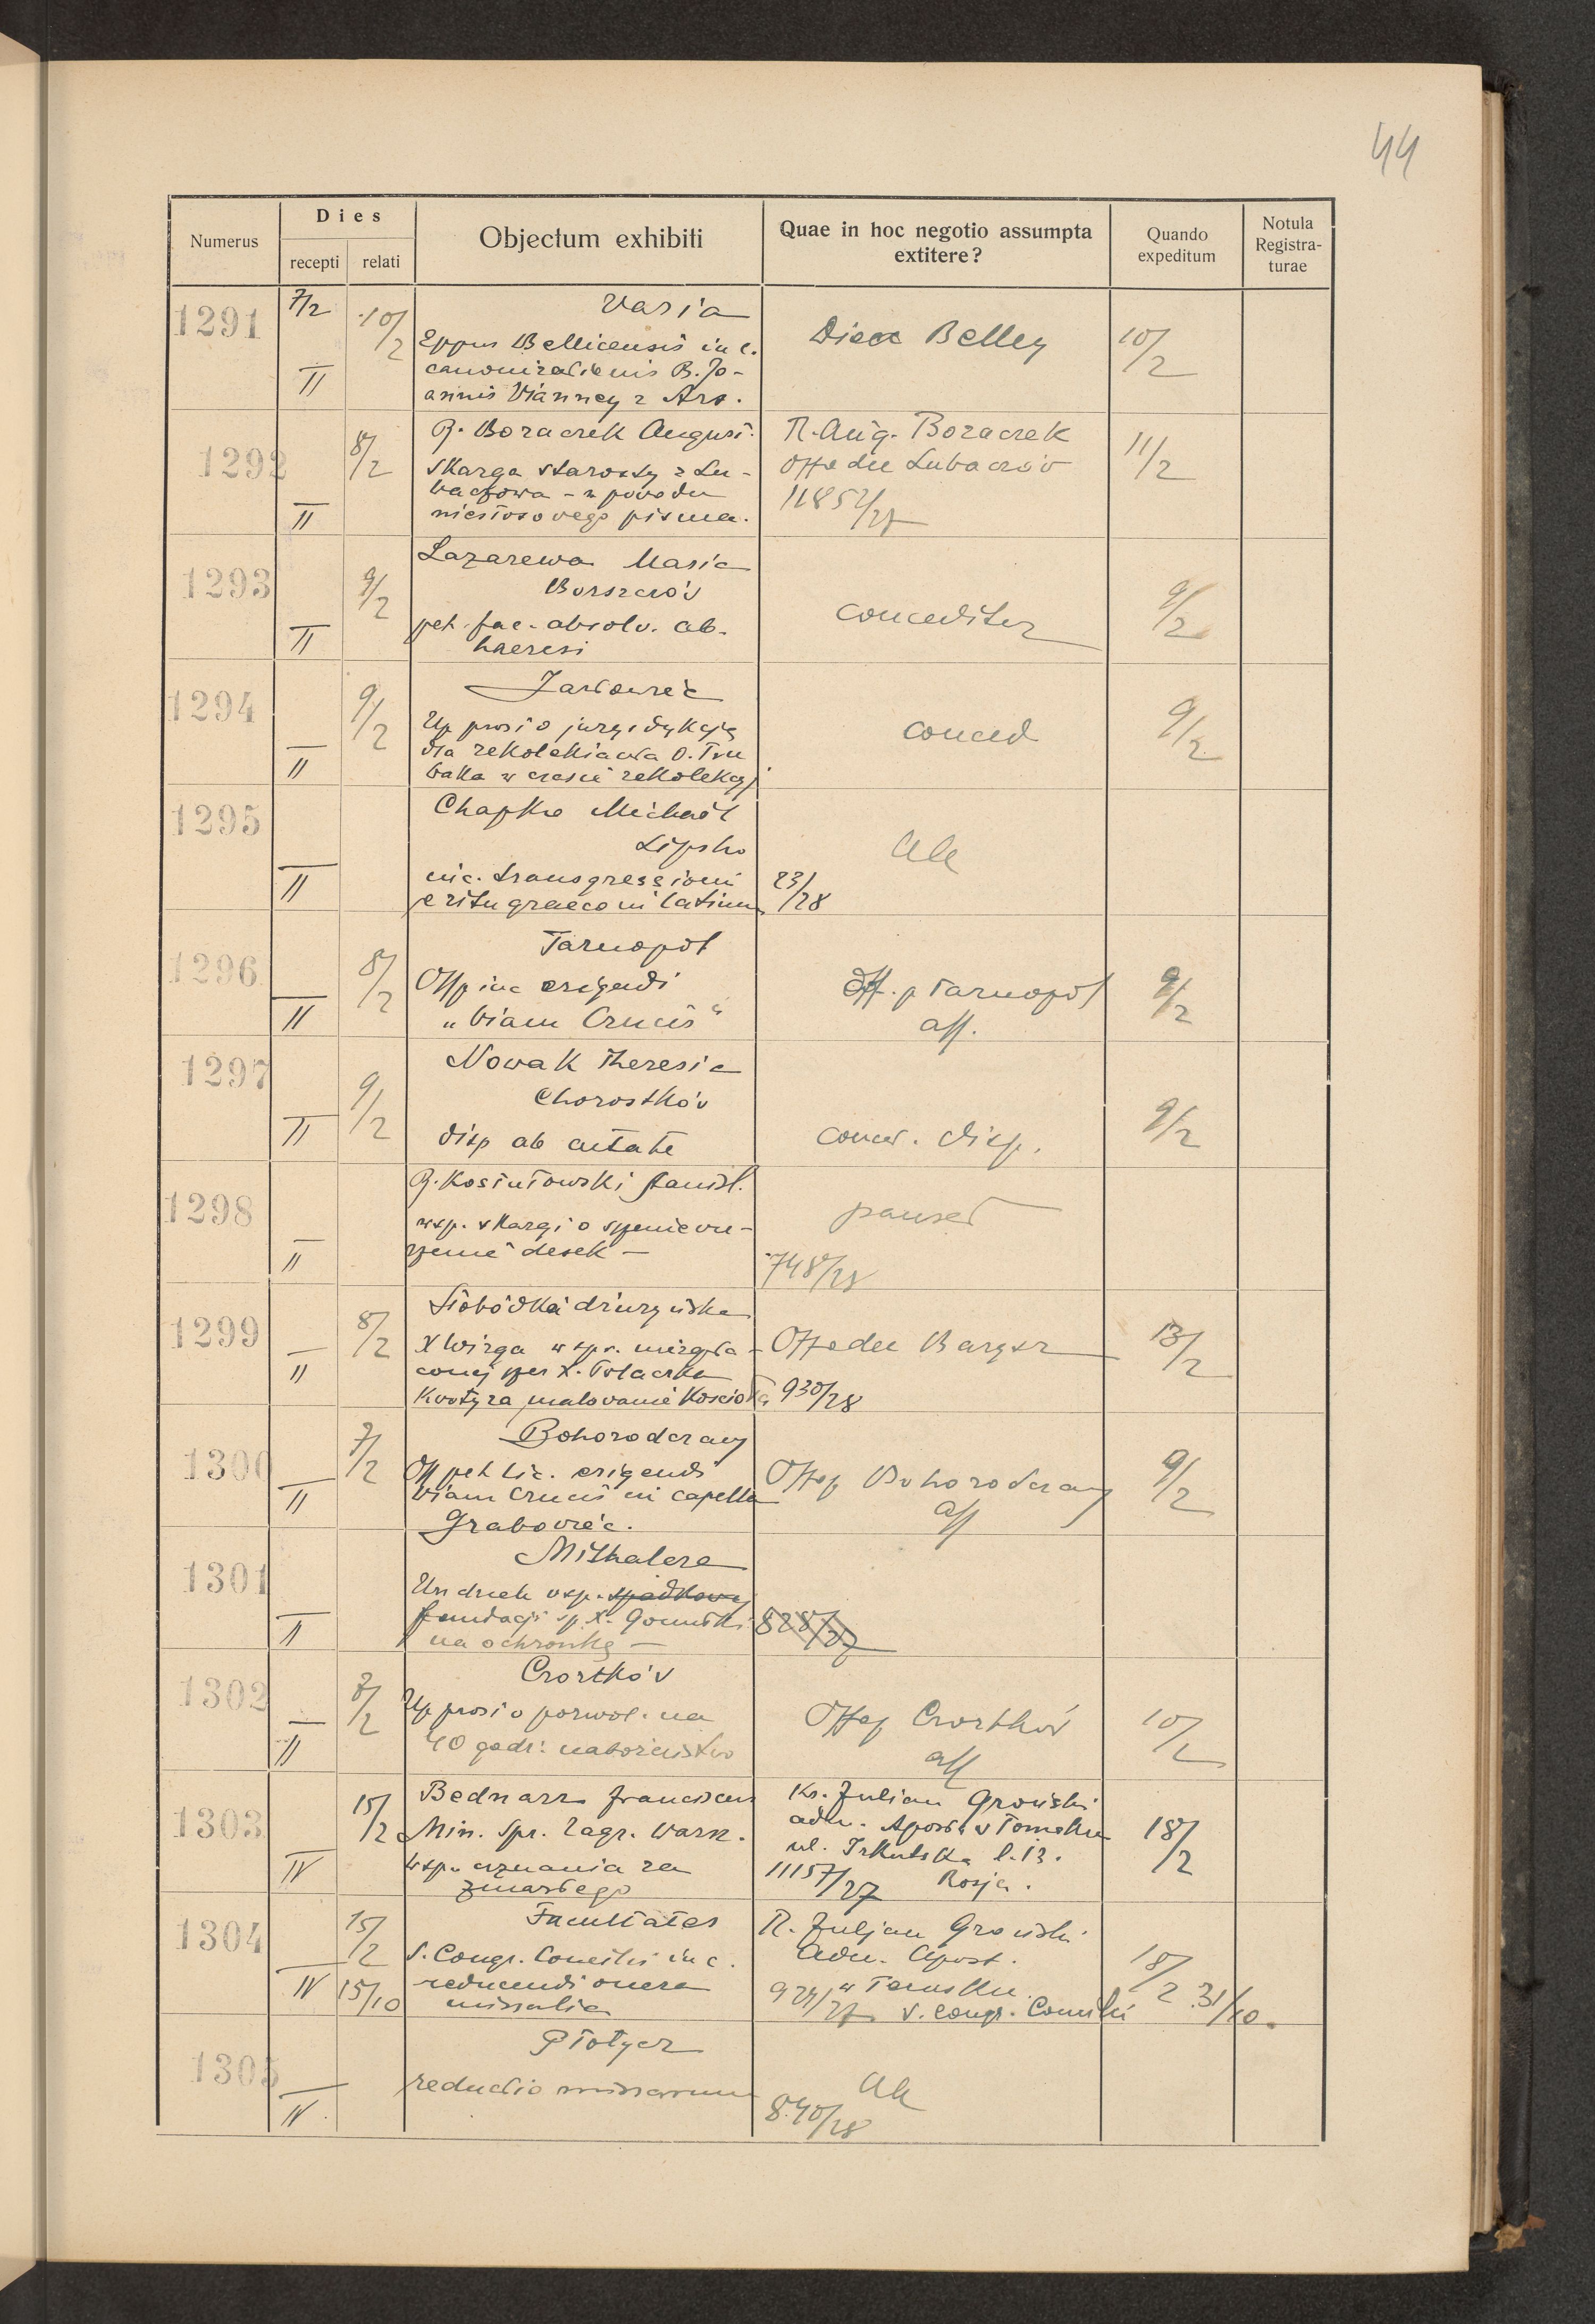 44
Numerus
Dies
recepti relati
Objectum exhibiti
Quae in hoc negotio assumpta
extitere?
Quando
expeditum
Notula
Registra-
turae
1291 7/2 10/2 II
Varia
Eppus Bellicensis in c.
canonizationis B. Jo-
annis Vianney z Ars.
Diec Belley
10/2
1292 8/2 II
R. Boraczek August.
skarga starosty z Lu-
baczowa - z powodu
niestosovego pisma.
R. Aug. Boraczek
Offo dec Lubaczów
11852/27
11/2
1293 9/2 II
Lazarewa Maria
Borszczów
pet. fac. absolv. ab.
haeresi
conceditur
9/2
1294 9/2 II
Jazłowiec
Up prosi o jurysdykcję
dla rekolektanta O. Tru
baka w czasie rekolekcyj
conced
9/2
1295 II
Chapko Michał
Lipsko
nic. transgressioni
e ritu graeco in latinum
23/28
1296 8/2 II
Tarnopol
Offp in c erigendi
„Viam Crucis"
Off. p Tarnopol
aff.
9/2
1297 9/2 II
Nowak Theresia
Chorostków
disp ab aetate
conc. disp.
9/2
1298 II
R. Kosiutowski Stanisl.
wsp. skargi o sprzeniewie-
rzenie desek —
748/28
1299 8/2 II
Słobódka dżuryńska
X Wirga w spr. niezapła-
conej prz X. Polaczka
kwoty za malowanie kościoła
Offo dec Barysz
930/28
13/2
1300 7/2 II
Bohorodczany
Off pet lic. erigendi
Viam Crucis in capella
Grabowiec.
Offop Bohorodczany
aff
9/2
1301 II
Mikhalcze
Un druch wsp. spadkowej
fundacji śp. X. Gomułki
na ochronkę —
828/27
1302 8/2 II
Czortków
Up prosi o pozwol. na
40 godz. nabożeństwo
Offop Czortków
aff
10/2
1303 15/2 IV
Bednarz Franciszek
Min. Spr. Zagr. Warsz.
wsp. uznania za
zmarłego
Ks. Julian Groński
adm. Apost. w Tomsku
ul. Irkutska l. 13.
11157/27 Rosja.
18/2
1304 15/2 IV 15/10
Facultates
S. Congr. Concilii in c.
reducendi onera
missalia
R. Juljan Groński
Adm. Apost.
w Tomsku
924/27 S. Congr. Concilii
18/2 31/10.
1305 IV
Płotycz
reductio missarum
840/28